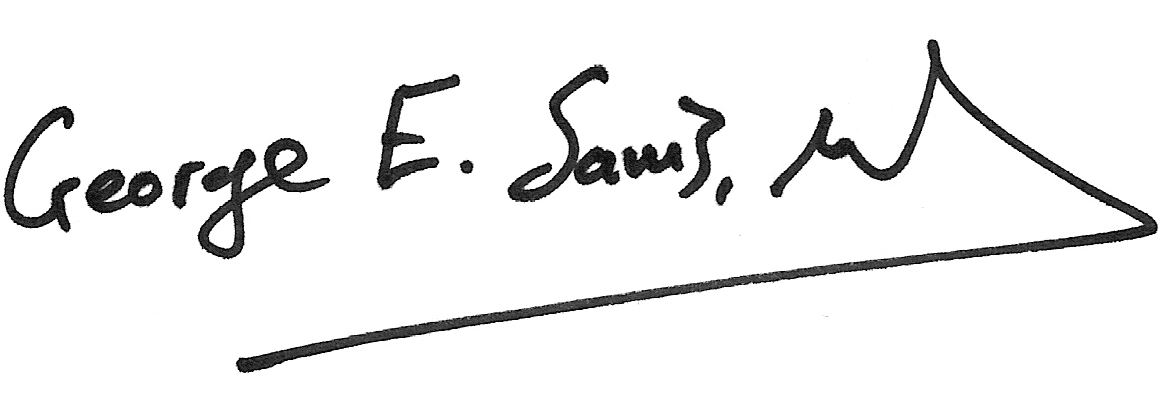 George E. Sams,